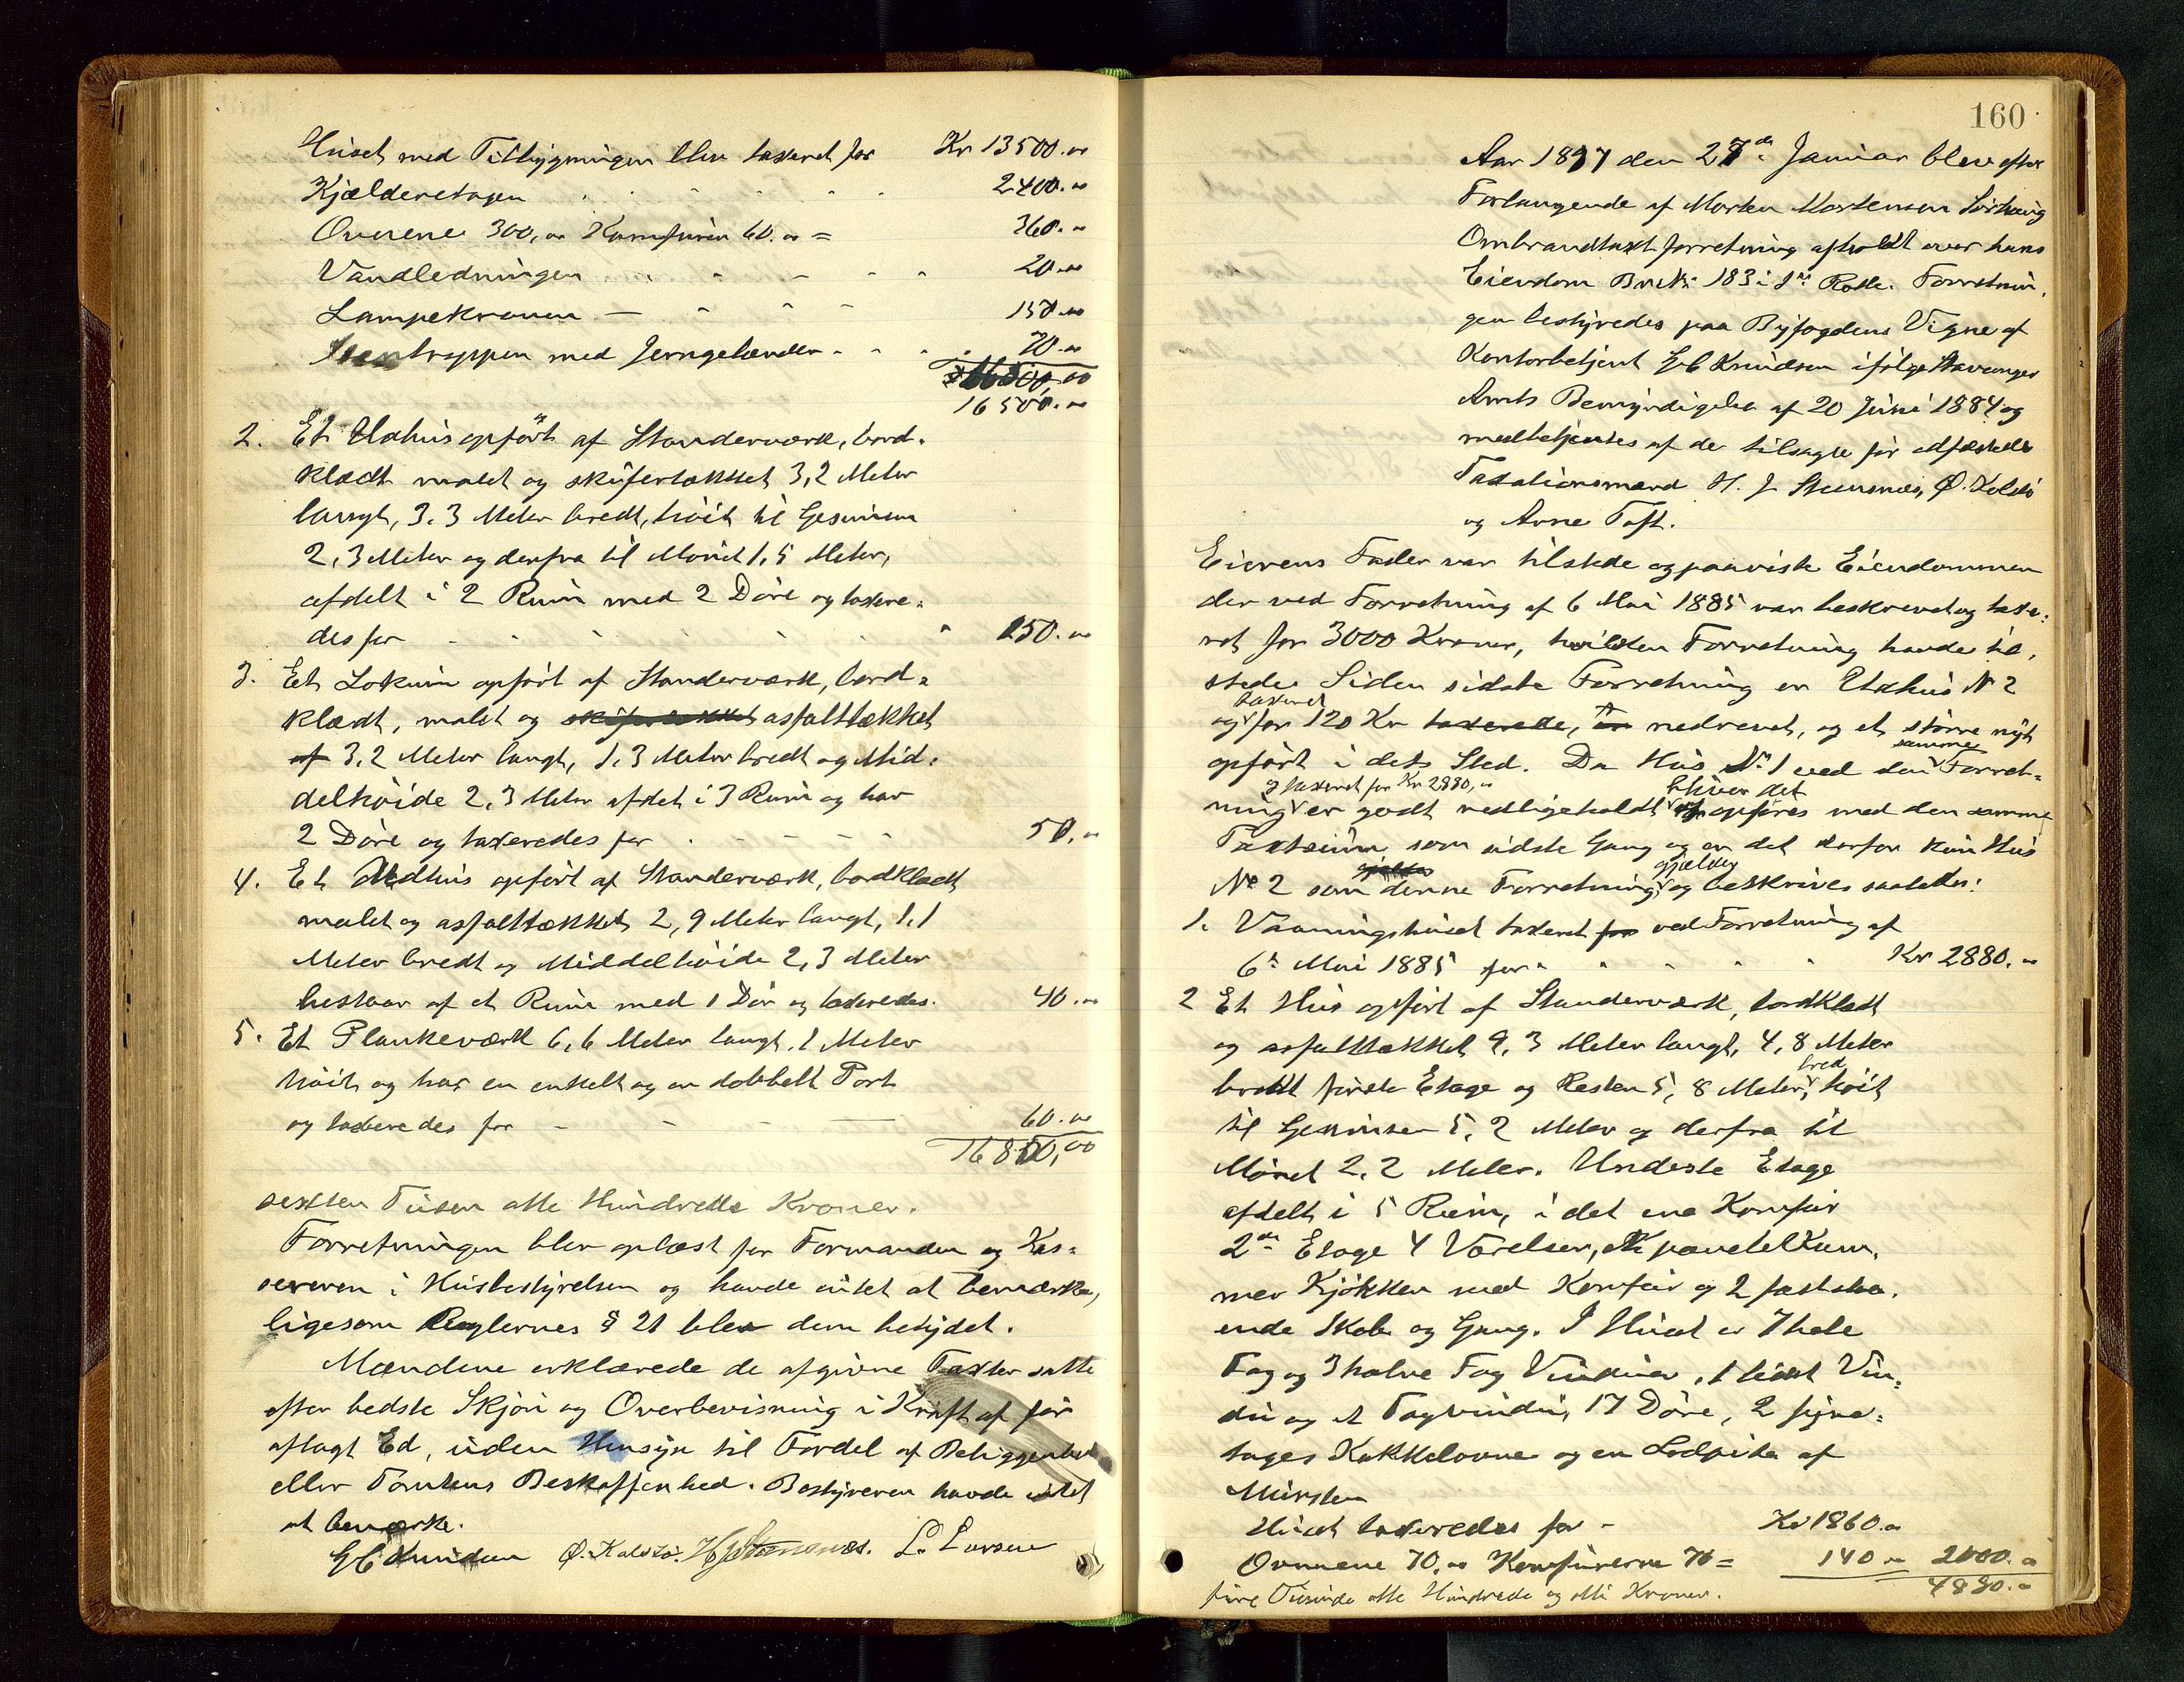 Huset med Tilbygningen blev taxeret for Kr 13500.00
Kjælderetagen 2400.00
Ovnene 300,00 Komfuren 60.00 = 360.00
Vandledningen 20.00
Lampekronen 150.00
Stentrappen med Jerngelænder 70.00
16500,00
16500.00
2. Et Udhus opført af Standerværk, bord-
klædt malet og skifertækket 3,2 Meter
langt, 3.3 Meter bredt, høit til Gesimsen
2,3 Meter og derfra til Mønet 1,5 Meter,
afdelt i 2 Rum med 2 Døre og taxere-
des for 250.00
3. Et Lokum opført af Standerværk, bord-
klædt, malet og skifertækket asfalttækket
af 3,2 Meter langt, 1,3 Meter bredt og Mid-
delhøide 2,3 Meter afdelt i 3 Rum og har
2 Døre og taxeredes for 50.00
4. Et Vedhus opført af Standerværk, bordklædt
malet og asfalttækket 2,9 Meter langt, 1,1
Meter bredt og Middelhøide 2,3 Meter
bestaar af et Rum med 1 Dør og taxeredes. 40.00
5. Et Plankeværk 6,6 Meter langt, 1 Meter
høit og har en enkelt og en dobbelt Port
og taxeredes for 60.00
16850,00
sexten Tusen otte Hundrede Kroner.
Forretningen blev oplæst for Formanden og Kas-
sereren i Husbestyrelsen og havde intet at bemærke,
ligesom Reglernes § 21 blev dem betydet.
Mændene erklærede de afgivne Taxter satte
efter bedste Skjøn og Overbevisning i Kraft af før
aflagt Ed, uden Hensyn til Fordel af Beliggenhed
eller Tomtens Beskaffenhed. Bestyreren havde intet
at bemærke.
G C Knudsen Ø. Kolstø. H J Steensnæs. L. Larsen
160
Aar 1897 den 27de Januar blev efter
Forlangende af Morten Mortensen Sørhaug
Ombrandtaxtforretning afholdt over hans
Eiendom Br.No 183 i 1ste Rode. Forretnin-
gen bestyredes paa Byfogdens Vegne af
Kontorbetjent G C Knudsen ifølge Stavanger
Amts Bemyndigelse af 20 Juni 1884 og
medbetjentes af de tilsagte før edfæstede
Taxationsmænd H. J Steensnæs, Ø. Kolstø
og Arne Toft.
Eierens Fader var tilstede og paaviste Eiendommen
der ved Forretning af 6 Mai 1885 var beskrevet og taxe-
ret for 3000 Kroner, hvilken Forretning havdes til-
stede. Siden sidste Forretning er Udhus No 2
taxeret
og for 120 Kr taxerede, er nedrevet, og et større nyt
opført i dets Sted. Da Hus No 1 ved den samme Forret-
og taxeret for Kr 2880,00 bliver det
ning er godt vedligeholdt og opføres med den samme
Taxtsum som sidste Gang og er det derfor kun Hus
gjælder gjælder
No 2 som denne Forretning og beskrives saaledes:
1. Vaaningshuset taxeret for ved Forretning af
6te Mai 1885 for Kr 2880.00
2 Et Hus opført af Standerværk, bordklædt
og asfalttækket 9,3 Meter langt, 4,8 Meter
bredt første Etage og Resten 5,8 Meter bred, høit
til Gesimsen 5,2 Meter og derfra til
Mønet 2,2 Meter. Underste Etage
afdelt i 5 Rum, i det ene Komfur
2den Etage 4 Værelser, panelet Kam-
mer Kjøkken med Komfur og 2 faststaa-
ende Skabe og Gang. I Huset er 7 hele
Fag og 3 halve Fag Vinduer, 1 lidet Vin-
du og et Tagvindu, 17 Døre, 2 fyre-
tages Kakkelovne og en Lodpibe af
Mursten
Huset taxeredes for Kr 1860.00
Ovnene 70.00 Komfurerne 70 = 140.00 2000.00
4880.00
fire Tusinde otte Hundrede og otti Kroner.